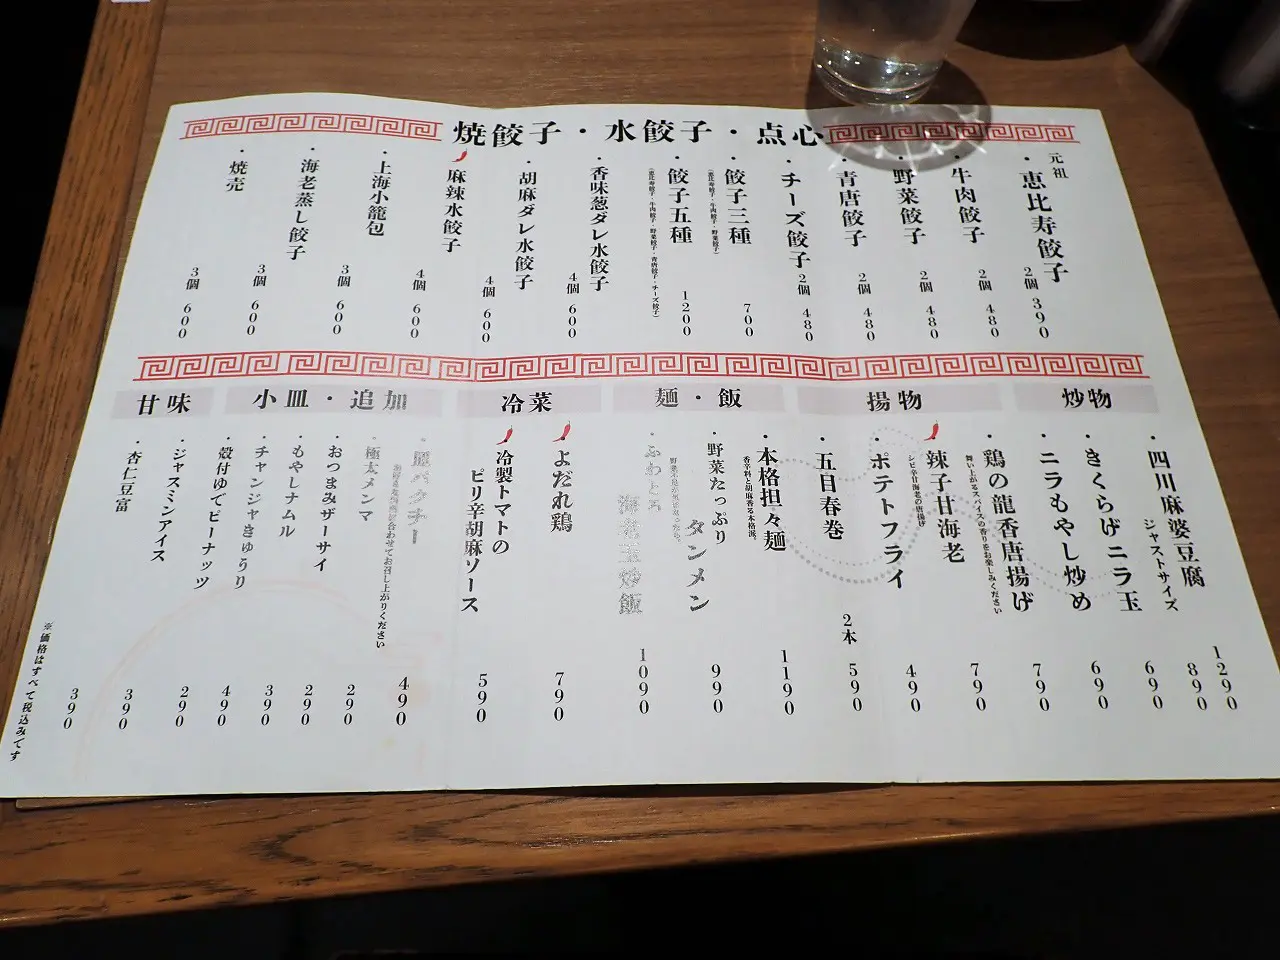 焼餃子・水餃子・点心
元祖
・恵比寿餃子 2個 390
・牛肉餃子 2個 480
・野菜餃子 2個 480
・青唐餃子 2個 480
・チーズ餃子 2個 480
・餃子三種 700
(恵比寿餃子・牛肉餃子・野菜餃子)
・餃子五種 1200
(恵比寿餃子・牛肉餃子・野菜餃子・青唐餃子・チーズ餃子)
・香味葱ダレ水餃子 4個 600
・胡麻ダレ水餃子 4個 600
麻辣水餃子 4個 600
・上海小籠包 3個 600
・海老蒸し餃子 3個 600
・焼売 3個 600
炒物
・四川麻婆豆腐 1290
ジャストサイズ 890
・きくらげニラ玉 690
・ニラもやし炒め 690
揚物
・鶏の龍香唐揚げ 790
舞い上がるスパイスの香りをお楽しみください
辣子甘海老 790
シビ辛甘海老の唐揚げ
・ポテトフライ 490
・五目春巻 2本 590
麺・飯
・本格担々麺 1190
香辛料と胡麻香る本格派。
・野菜たっぷり
タンメン 990
・ふわとろ
海老玉炒飯 1090
冷菜
・よだれ鶏 790
・冷製トマトの
ピリ辛胡麻ソース 590
小皿・追加
・皿パクチー 490
・極太メンマ 290
・おつまみザーサイ 290
・もやしナムル 390
・チャンジャきゅうり 490
・殻付ゆでピーナッツ 290
甘味
・ジャスミンアイス 390
・杏仁豆富 390
※価格はすべて税込みです